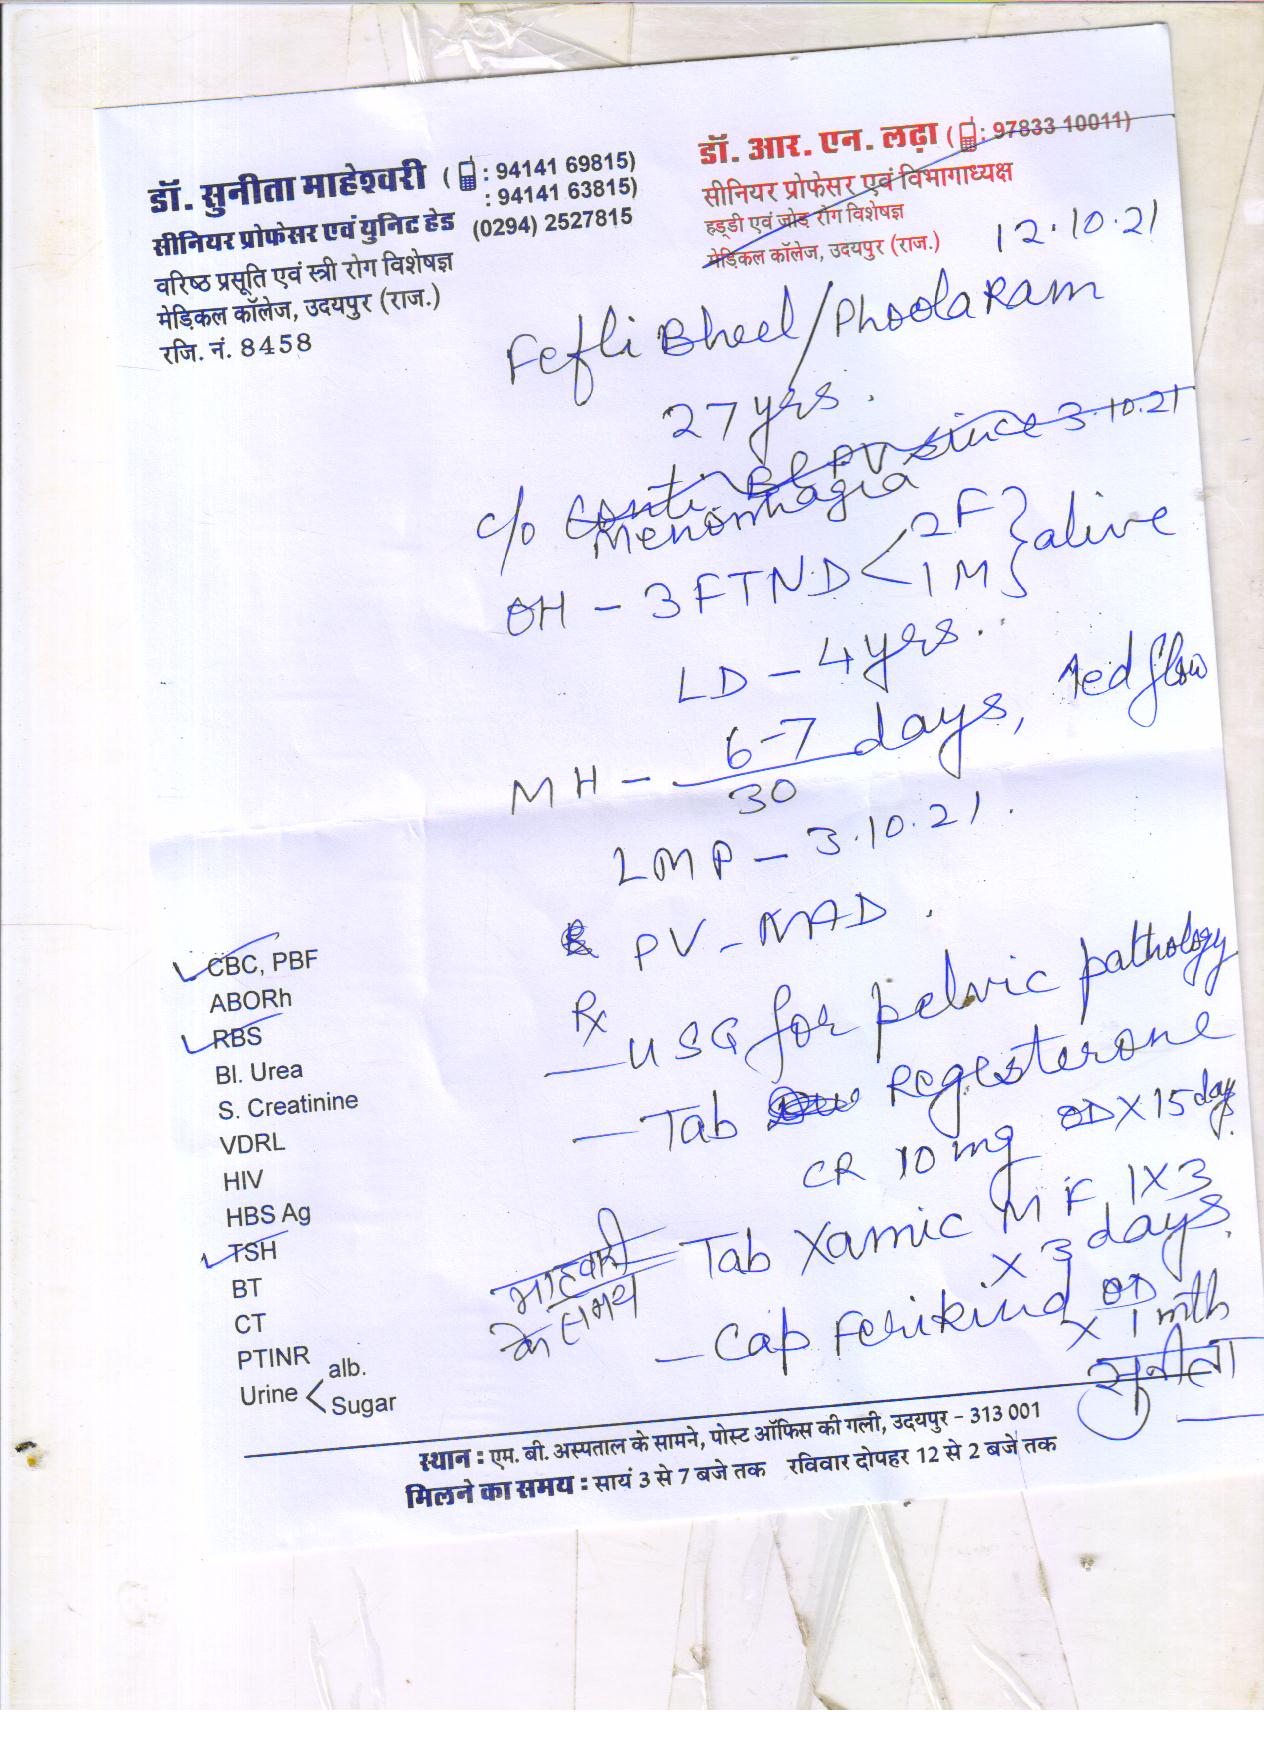 डॉ. सुनीता माहेश्वरी ( : 94141 69815)
: 94141 63815)
सीनियर प्रोफेसर एवं युनिट हेड (0294) 2527815
वरिष्ठ प्रसूति एवं स्त्री रोग विशेषज्ञ
मेडिकल कॉलेज, उदयपुर (राज.)
रजि. नं. 8458
डॉ. आर. एन. लढ़ा ( : 97833 10011)
सीनियर प्रोफेसर एवं विभागाध्यक्ष
हड्डी एवं जोड़ रोग विशेषज्ञ
मेडिकल कॉलेज, उदयपुर (राज.)
12.10.21
Fefli Bheel/Phoola Ram
27 yrs.
c/o Conti Bl PV since 3.10.21
Menorrhagia
OH - 3 FTND < 2F } alive
1M
LD - 4 yrs.
MH - 6-7 days, ↑ed flow
30
LMP - 3.10.21.
PV - NAD.
Rx
- USG for pelvic pathology
- Tab Regesterone
CR 10 mg OD X 15 days
माहवारी के समय
- Tab Xamic MF 1 X 3
X 3 days
- Cap Ferikind OD
X 1 mth
सुनीता
CBC, PBF
ABORh
RBS
Bl. Urea
S. Creatinine
VDRL
HIV
HBS Ag
TSH
BT
CT
PTINR
Urine < alb.
Sugar
स्थान : एम. बी. अस्पताल के सामने, पोस्ट ऑफिस की गली, उदयपुर - 313 001
मिलने का समय : सायं 3 से 7 बजे तक रविवार दोपहर 12 से 2 बजे तक